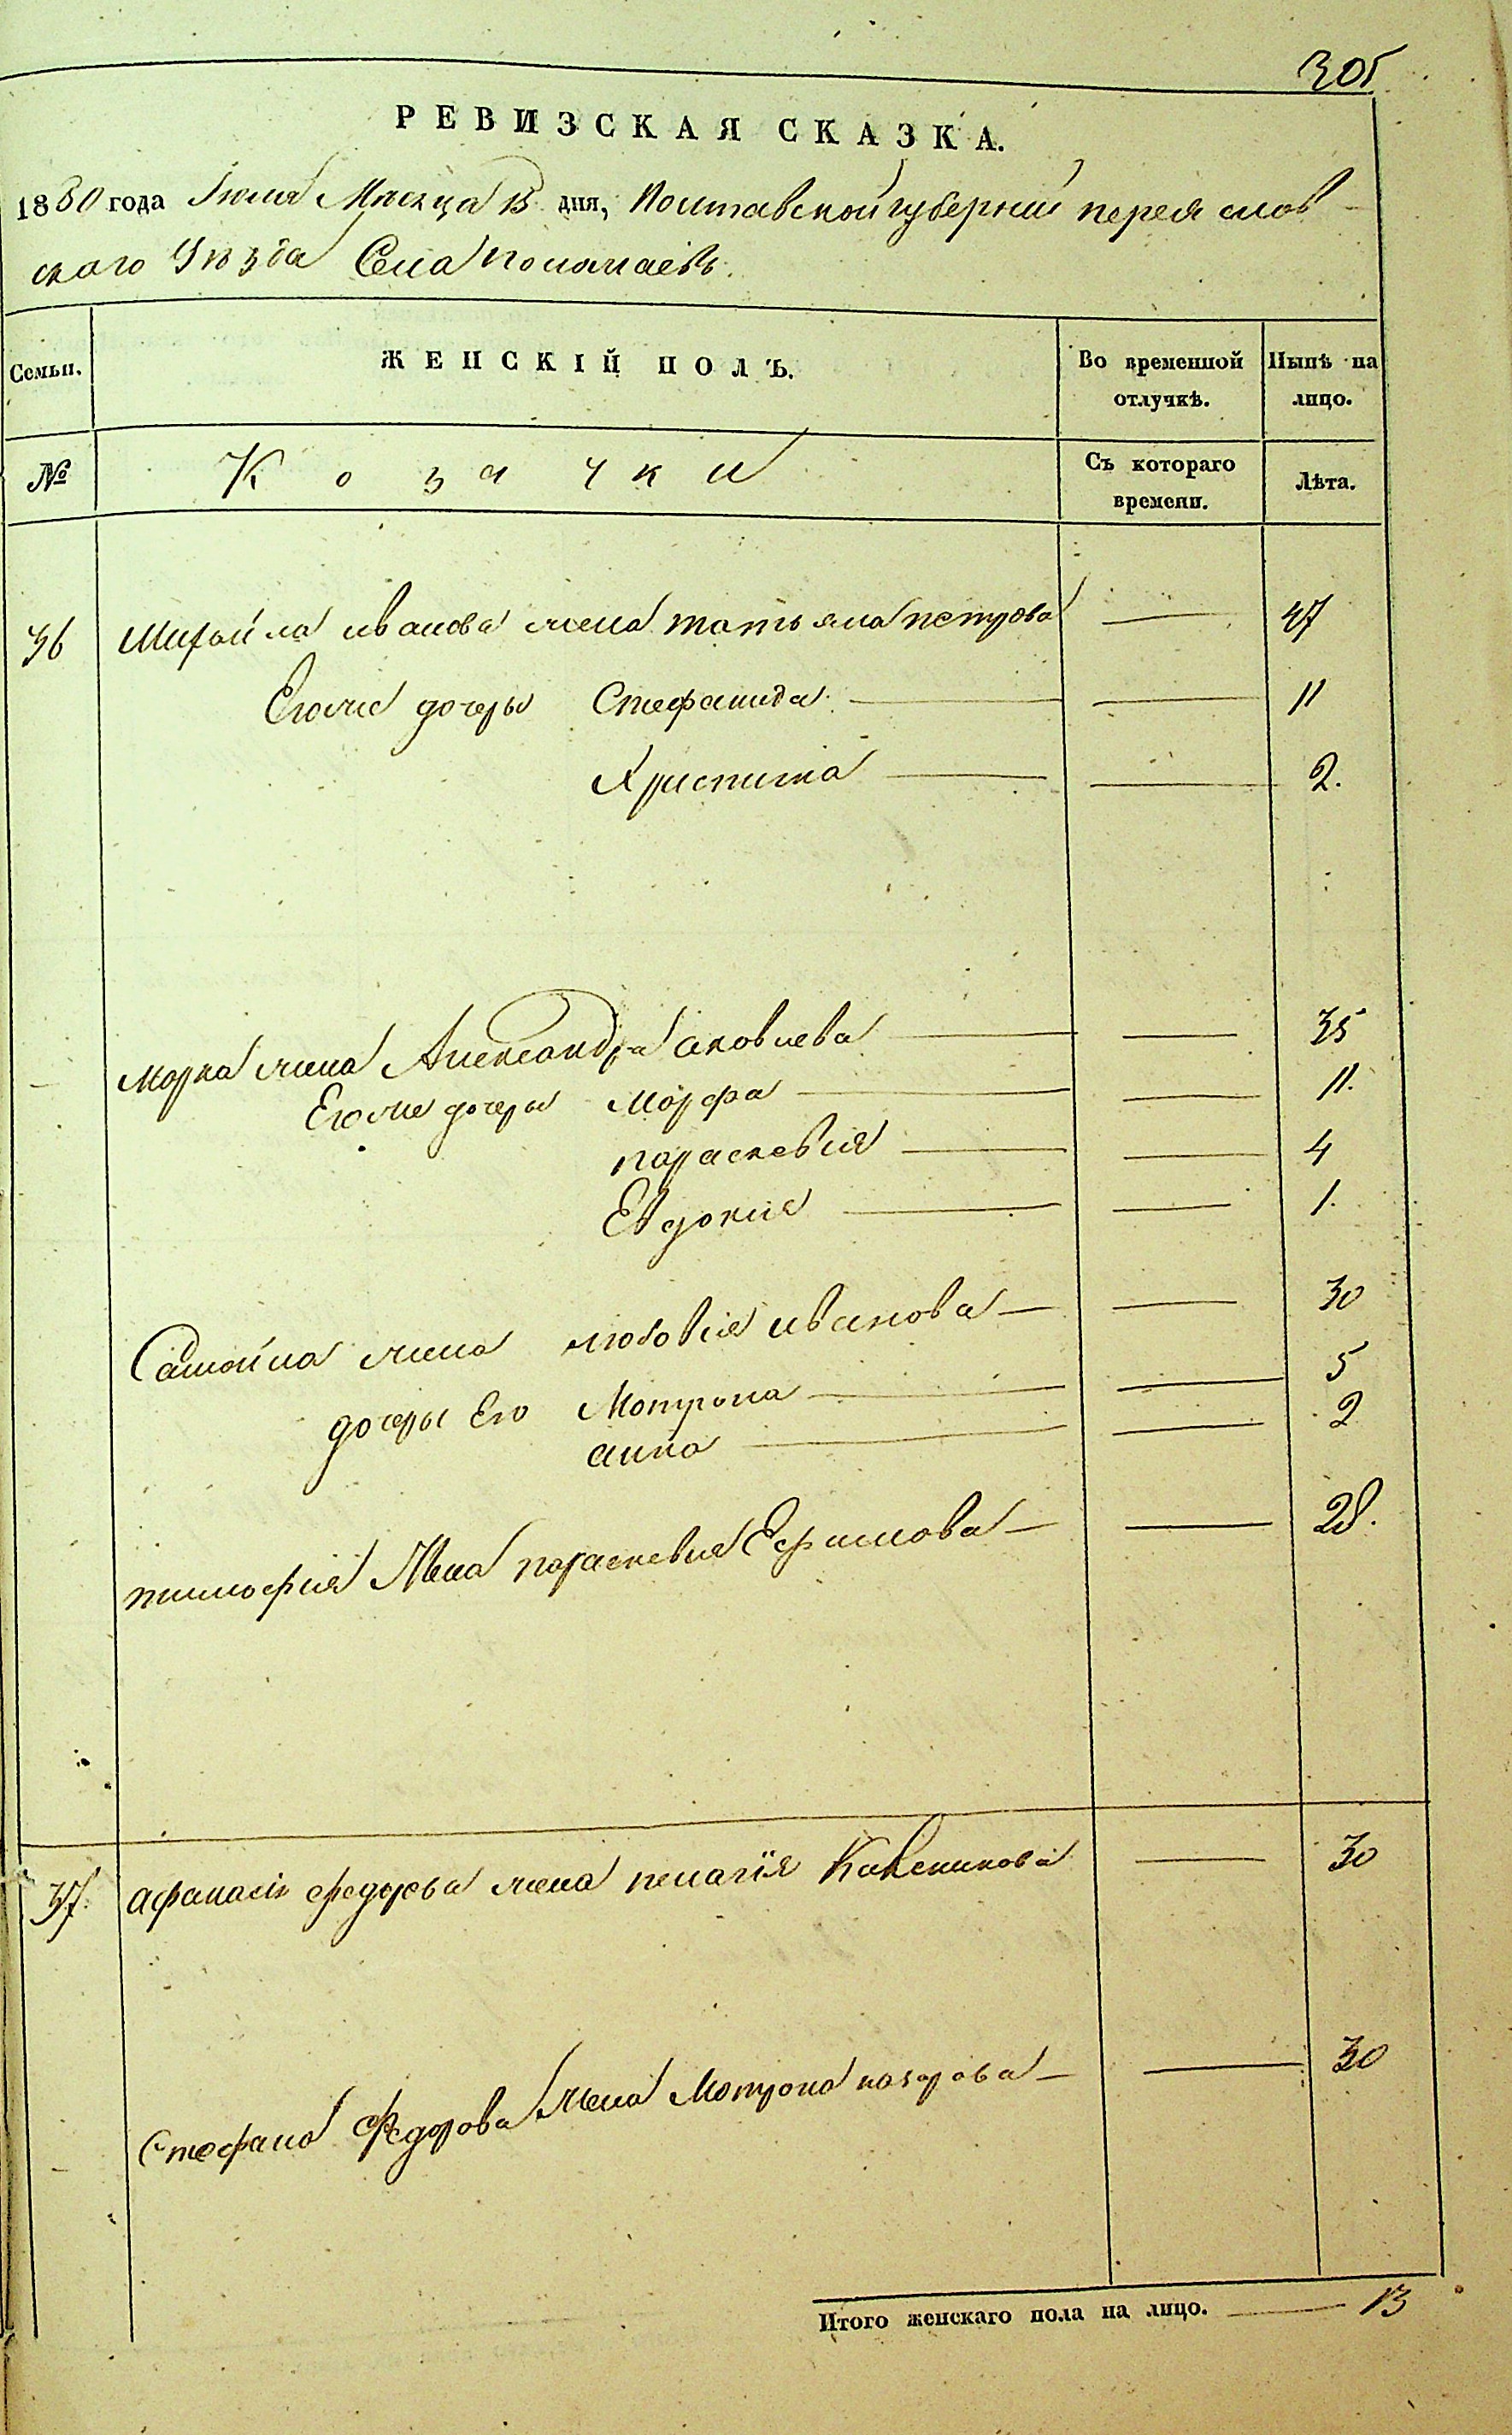 305
РЕВИЗСКАЯ СКАЗКА.
1850 года Июля Месяца 13 дня, Полтавской губернии переяслов
скаго Уезда Села Положаевъ.
Семьи. ЖЕНСКІЙ ПОЛЪ. Во временной отлучкѣ. Нынѣ на лицо.
№ Козачки Съ котораго времени. Лѣта.
36 Михайла иванова жена татьяна петрова — 47
Егоже дочеры Стефанида — — 11
Христина — — 2.
Марка жена Александра аковлева — — 35
Егоже дочеры Марфа — — 11.
параскевия — — 4
Евдокия — — 1.
Самойла жена любовия иванова — — 30
дочеры Его Мотрона — — 5
анна — — 2
тимофия Жена параскевия Ефимова — — 28.
37. афанасія федорова жена пелагія — 30
Стефана Федорова Жена Мотрона назарова — — 30
Итого женскаго пола на лицо. — 13